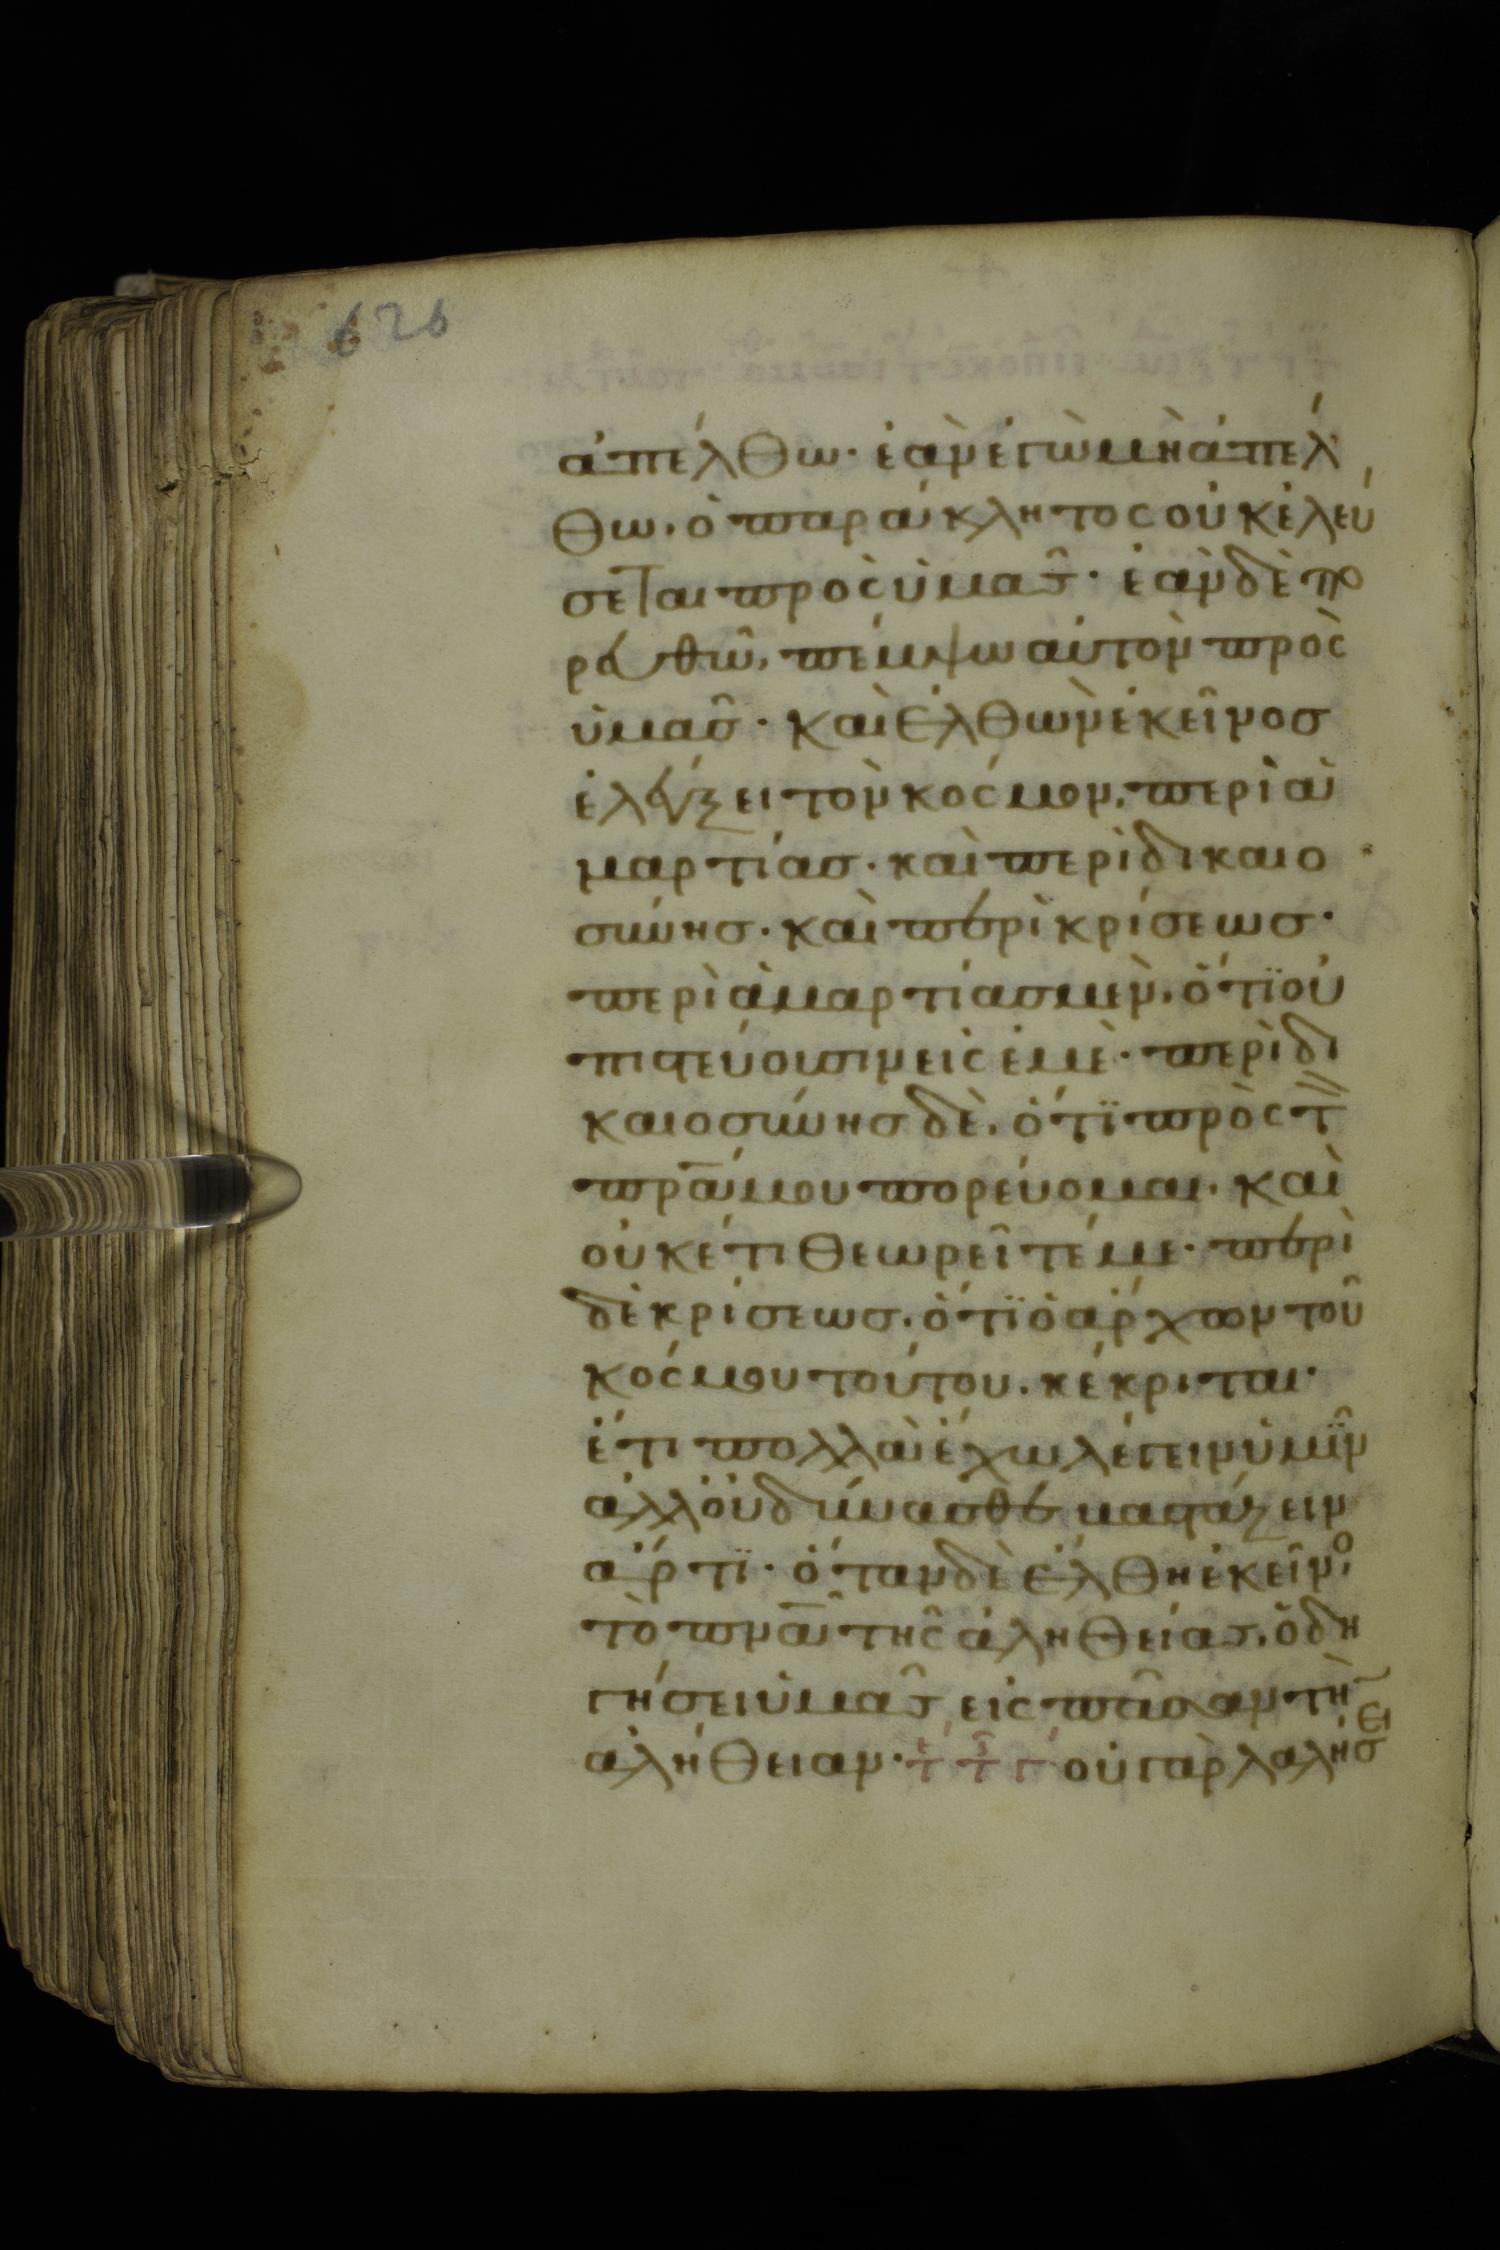 626
ἀπέλθω· ἐὰν ἐγὼ μὴ ἀπέλ
θω, ὁ παράκλητος οὐκ ἐλεύ
σεται πρὸς ὑμᾶς· ἐὰν δὲ πο
ρευθῶ, πέμψω αὐτὸν πρὸς
ὑμᾶς· καὶ ἐλθὼν ἐκεῖνος
ἐλέγξει τὸν κόσμον, περὶ ἁ
μαρτίας· καὶ περὶ δικαιο
σύνης· καὶ περὶ κρίσεως·
περὶ ἁμαρτίας μὲν, ὅτϊ οὐ
πιστεύουσιν εἰς ἐμὲ· περὶ δι
καιοσύνης δὲ, ὅτϊ πρὸς τ
πρα μου πορεύομαι· καὶ
οὐκέτι θεωρεῖτέ με· περὶ
δὲ κρίσεως, ὅτϊ ὁ ἄρχων τοῦ
κόσμου τούτου, κέκριται·
ἔτι πολλὰ ἔχω λέγειν ὑμῖν
ἀλλ οὐ δύνασθε βαστάζειν
ἄρτϊ· ὅταν δὲ ἔλθη ἐκεῖνο
τὸ πνα τῆς ἀληθείας, ὁδη
γήσει ὑμᾶς εἰς πᾶσαν τὴ
ἀλήθειαν· οὐ γὰρ λαλήσει